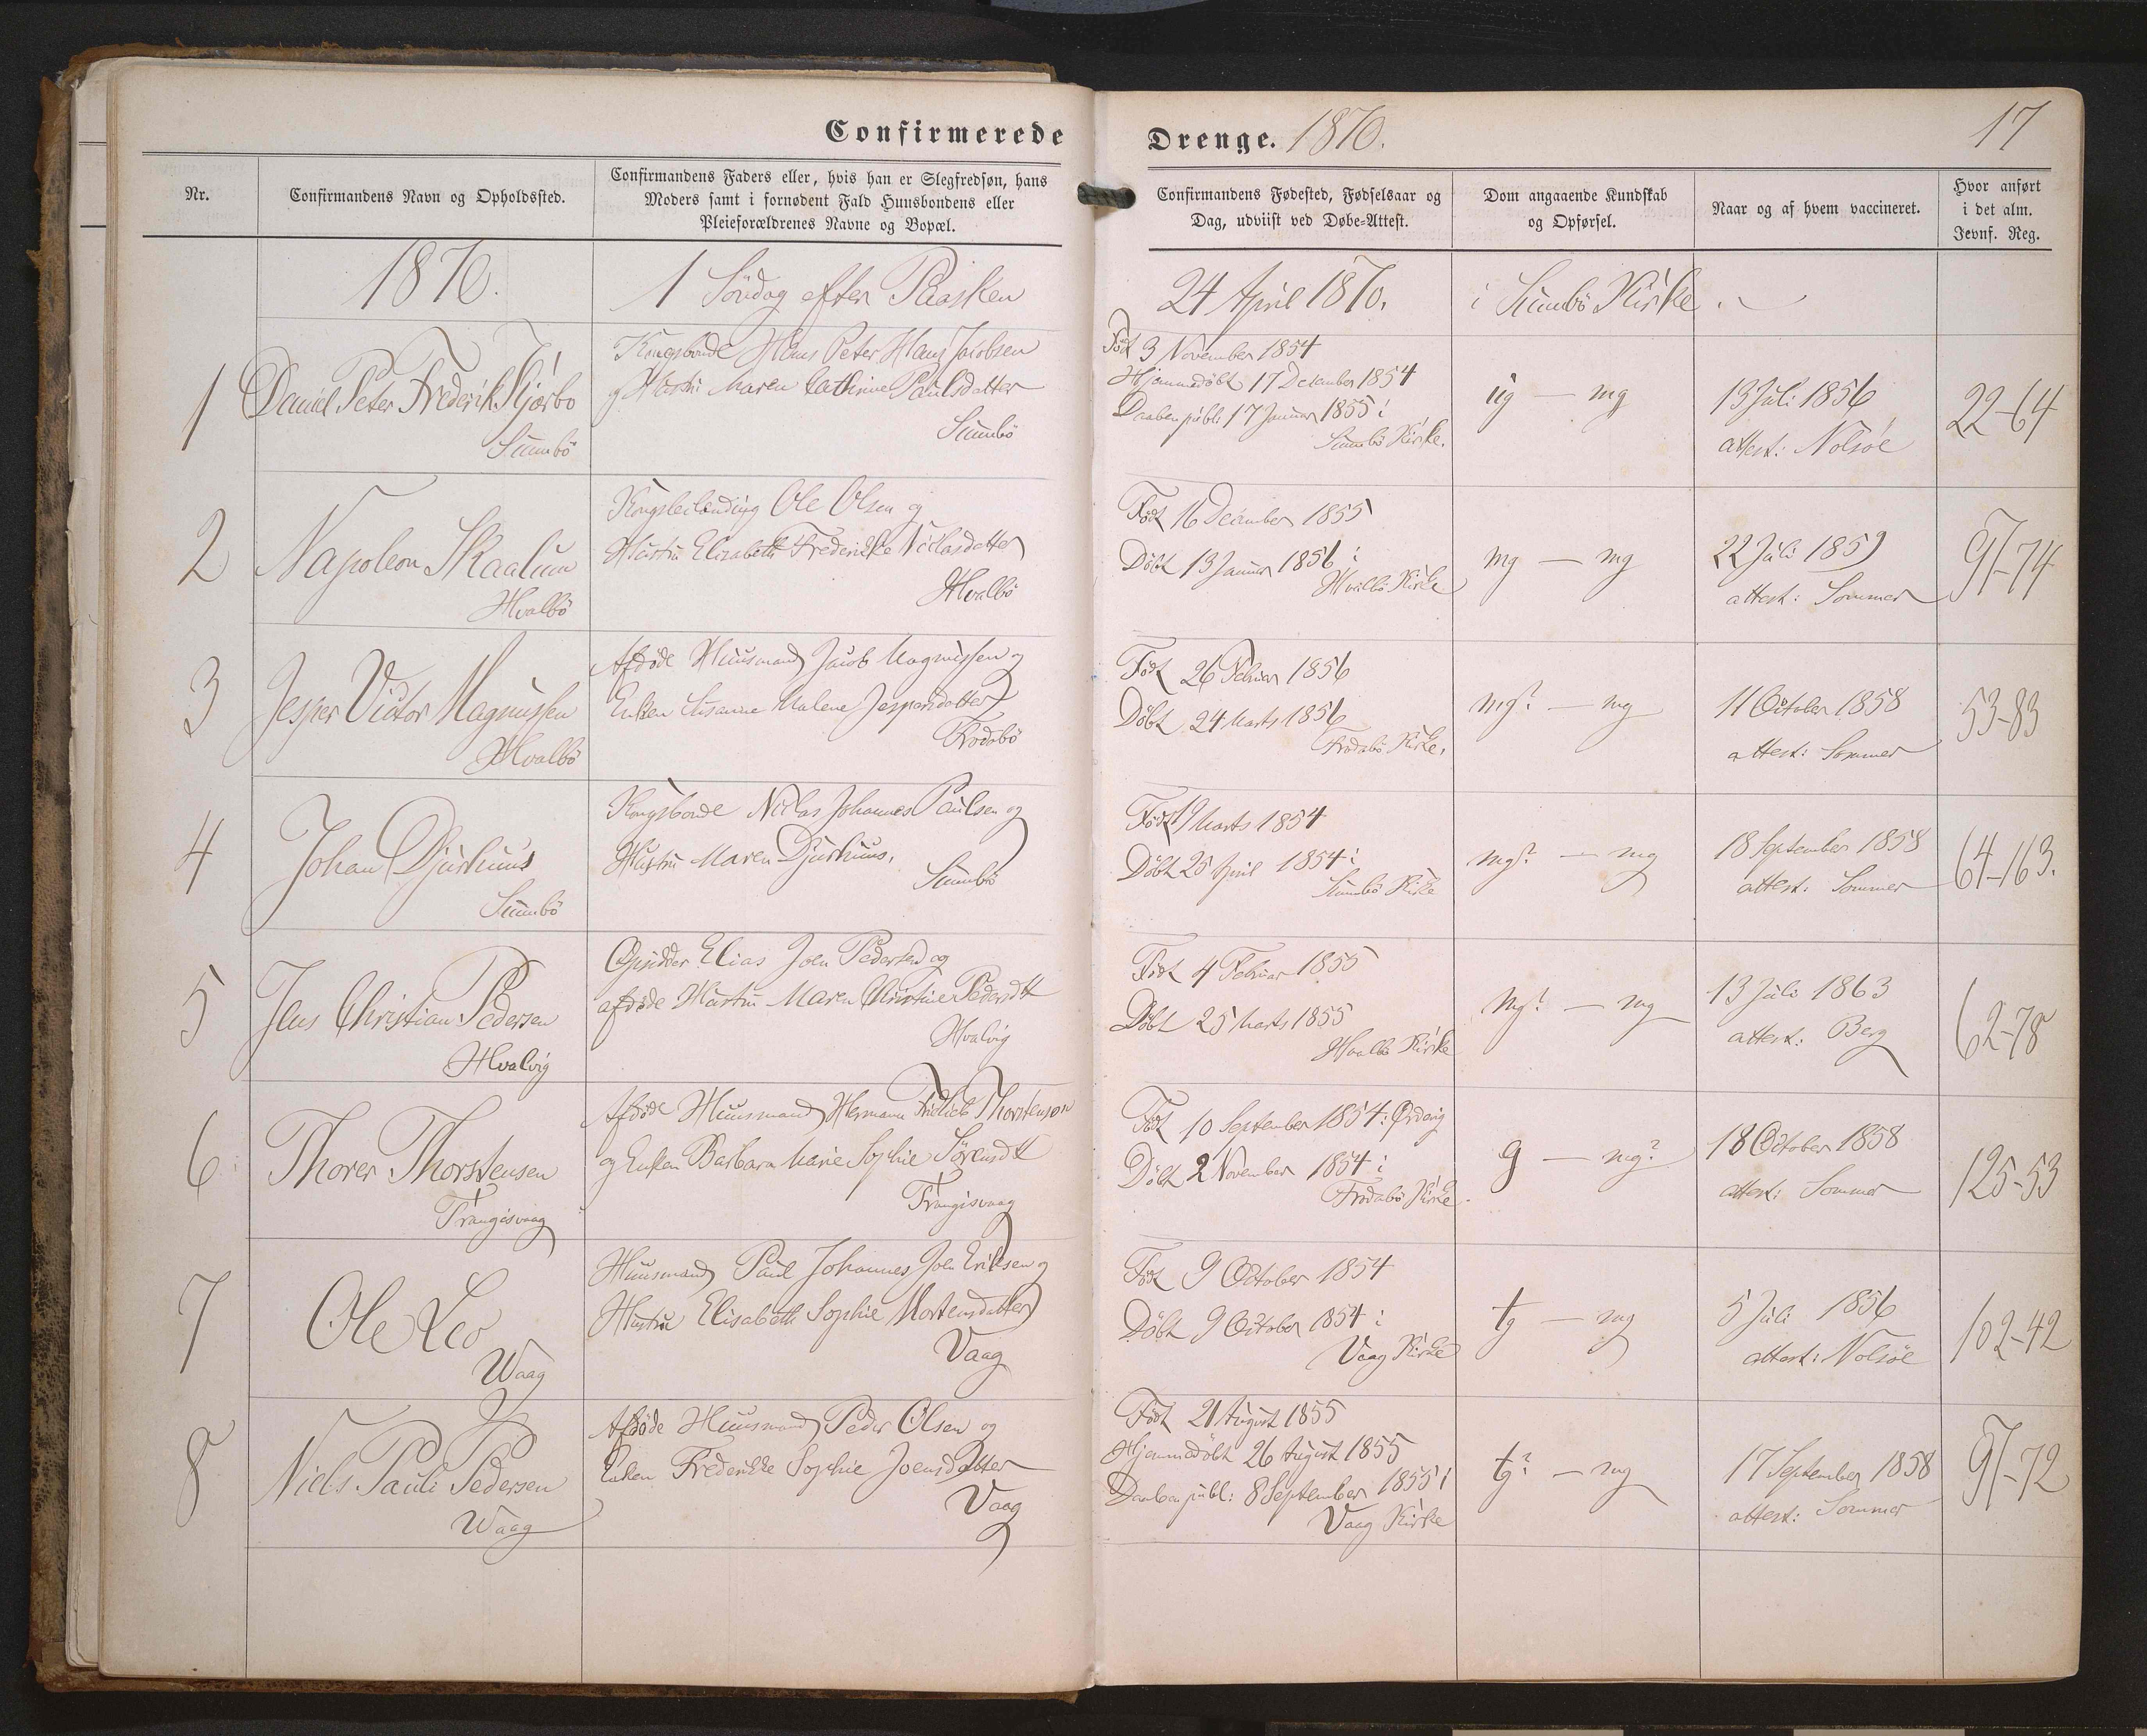 Confirmerede Drenge. 1870. 17
Nr.
Confirmandens Navn og Opholdssted.
Confirmandens Faders eller, hvis han er Slegfredsøn, hans
Moders samt i fornødent Fald Huusbondens eller
Pleieforældrenes Navne og Bopæl.
Confirmandens Fødested, Fødselsaar og
Dag, udviist ved Døbe-Attest.
Dom angaaende Kundskab
og Opførsel.
Naar og af hvem vaccineret.
Hvor anført
i det alm.
Jevnf. Reg.
1870. 1 Søndag efter Paasken 24 April 1870. i Sumbö Kirke.
1
Daniel Peter Frederik Kjærbo
Sumbö
Kongsbonde Hans Peter Hans Jacobsen
og Hustru Maren Cathrine Poulsdatter
Sumbö
Født 3 November 1854
Hjemmedøbt 17 December 1854
Daaben publ: 17 Januar 1855 i
Sumbö Kirke.
ug — mg
13 Juli 1856
attest: Nolsöe
22-64
2
Napoleon Skaalum
Hvalbö
Ole Olsen og
Hustru Elisabeth Fredericke Niclasdatter
Hvalbö
Født 16 December 1855
Döbt 13 Januar 1856 i
Hvalbö Kirke
mg — mg
22 Juli 1859
attest: Sommer
97-74
3
Jesper Victor Magnussen
Hvalbö
Afdöde Huusmand Jacob Magnussen og
Enken Susanne Malene Jespersdatter
Frodebö
Født 26 Februar 1856
Döbt 24 Marts 1856
Frodebö Kirke.
mg? — mg
11 October 1858
attest: Sommer
53-83
4
Johan Djurhuus
Sumbö
Kongsbonde Niclas Johannes Poulsen og
Hustru Maren Djurhuus,
Sumbö
Født 19 Marts 1854
Döbt 25 April 1854 i
Sumbö Kirke
mg? — mg
18 September 1858
attest: Sommer
64-163.
5
Jens Christian Pedersen
Hvalvig
Opsidder Elias Joen Pedersen og
afdöde Hustru Maren Christine Pedersdtt
Hvalvig
Født 4 Februar 1855
Döbt 25 Marts 1855
Hvalbö Kirke
mg? — mg
13 Juli 1863
attest: Berg
62-78
6
Thorer Thorstensen
Trangisvaag
Afdöde Huusmand Hermann Thorstensen
og Enken Barbara Marie Sophie Sörensdtt
Trangisvaag
Født 10 September 1854 i Ördevig
Döbt 2 November 1854 i
Frodebö Kirke
g — mg?
18 October 1858
attest: Sommer
125-53
7
Ole Leo
Waag
Huusmand Paul Johannes Joen Eriksen og
Hustru Elisabeth Sophie Mortensdatter
Vaag
Født 9 October 1854
Döbt 9 October 1854 i
Vaag Kirke
tg — mg
5 Juli 1856
attest: Nolsöe
102-42
8
Niels Pauli Pedersen
Waag
Afdöde Huusmand Peder Olsen og
Enken Fredericke Sophie Joensdatter
Vaag
Født 21 August 1855
Hjemmedöbt 26 August 1855
Daaben publ: 8 September 1855 i
Vaag Kirke
tg? — mg
17 September 1858
attest: Sommer
97-72